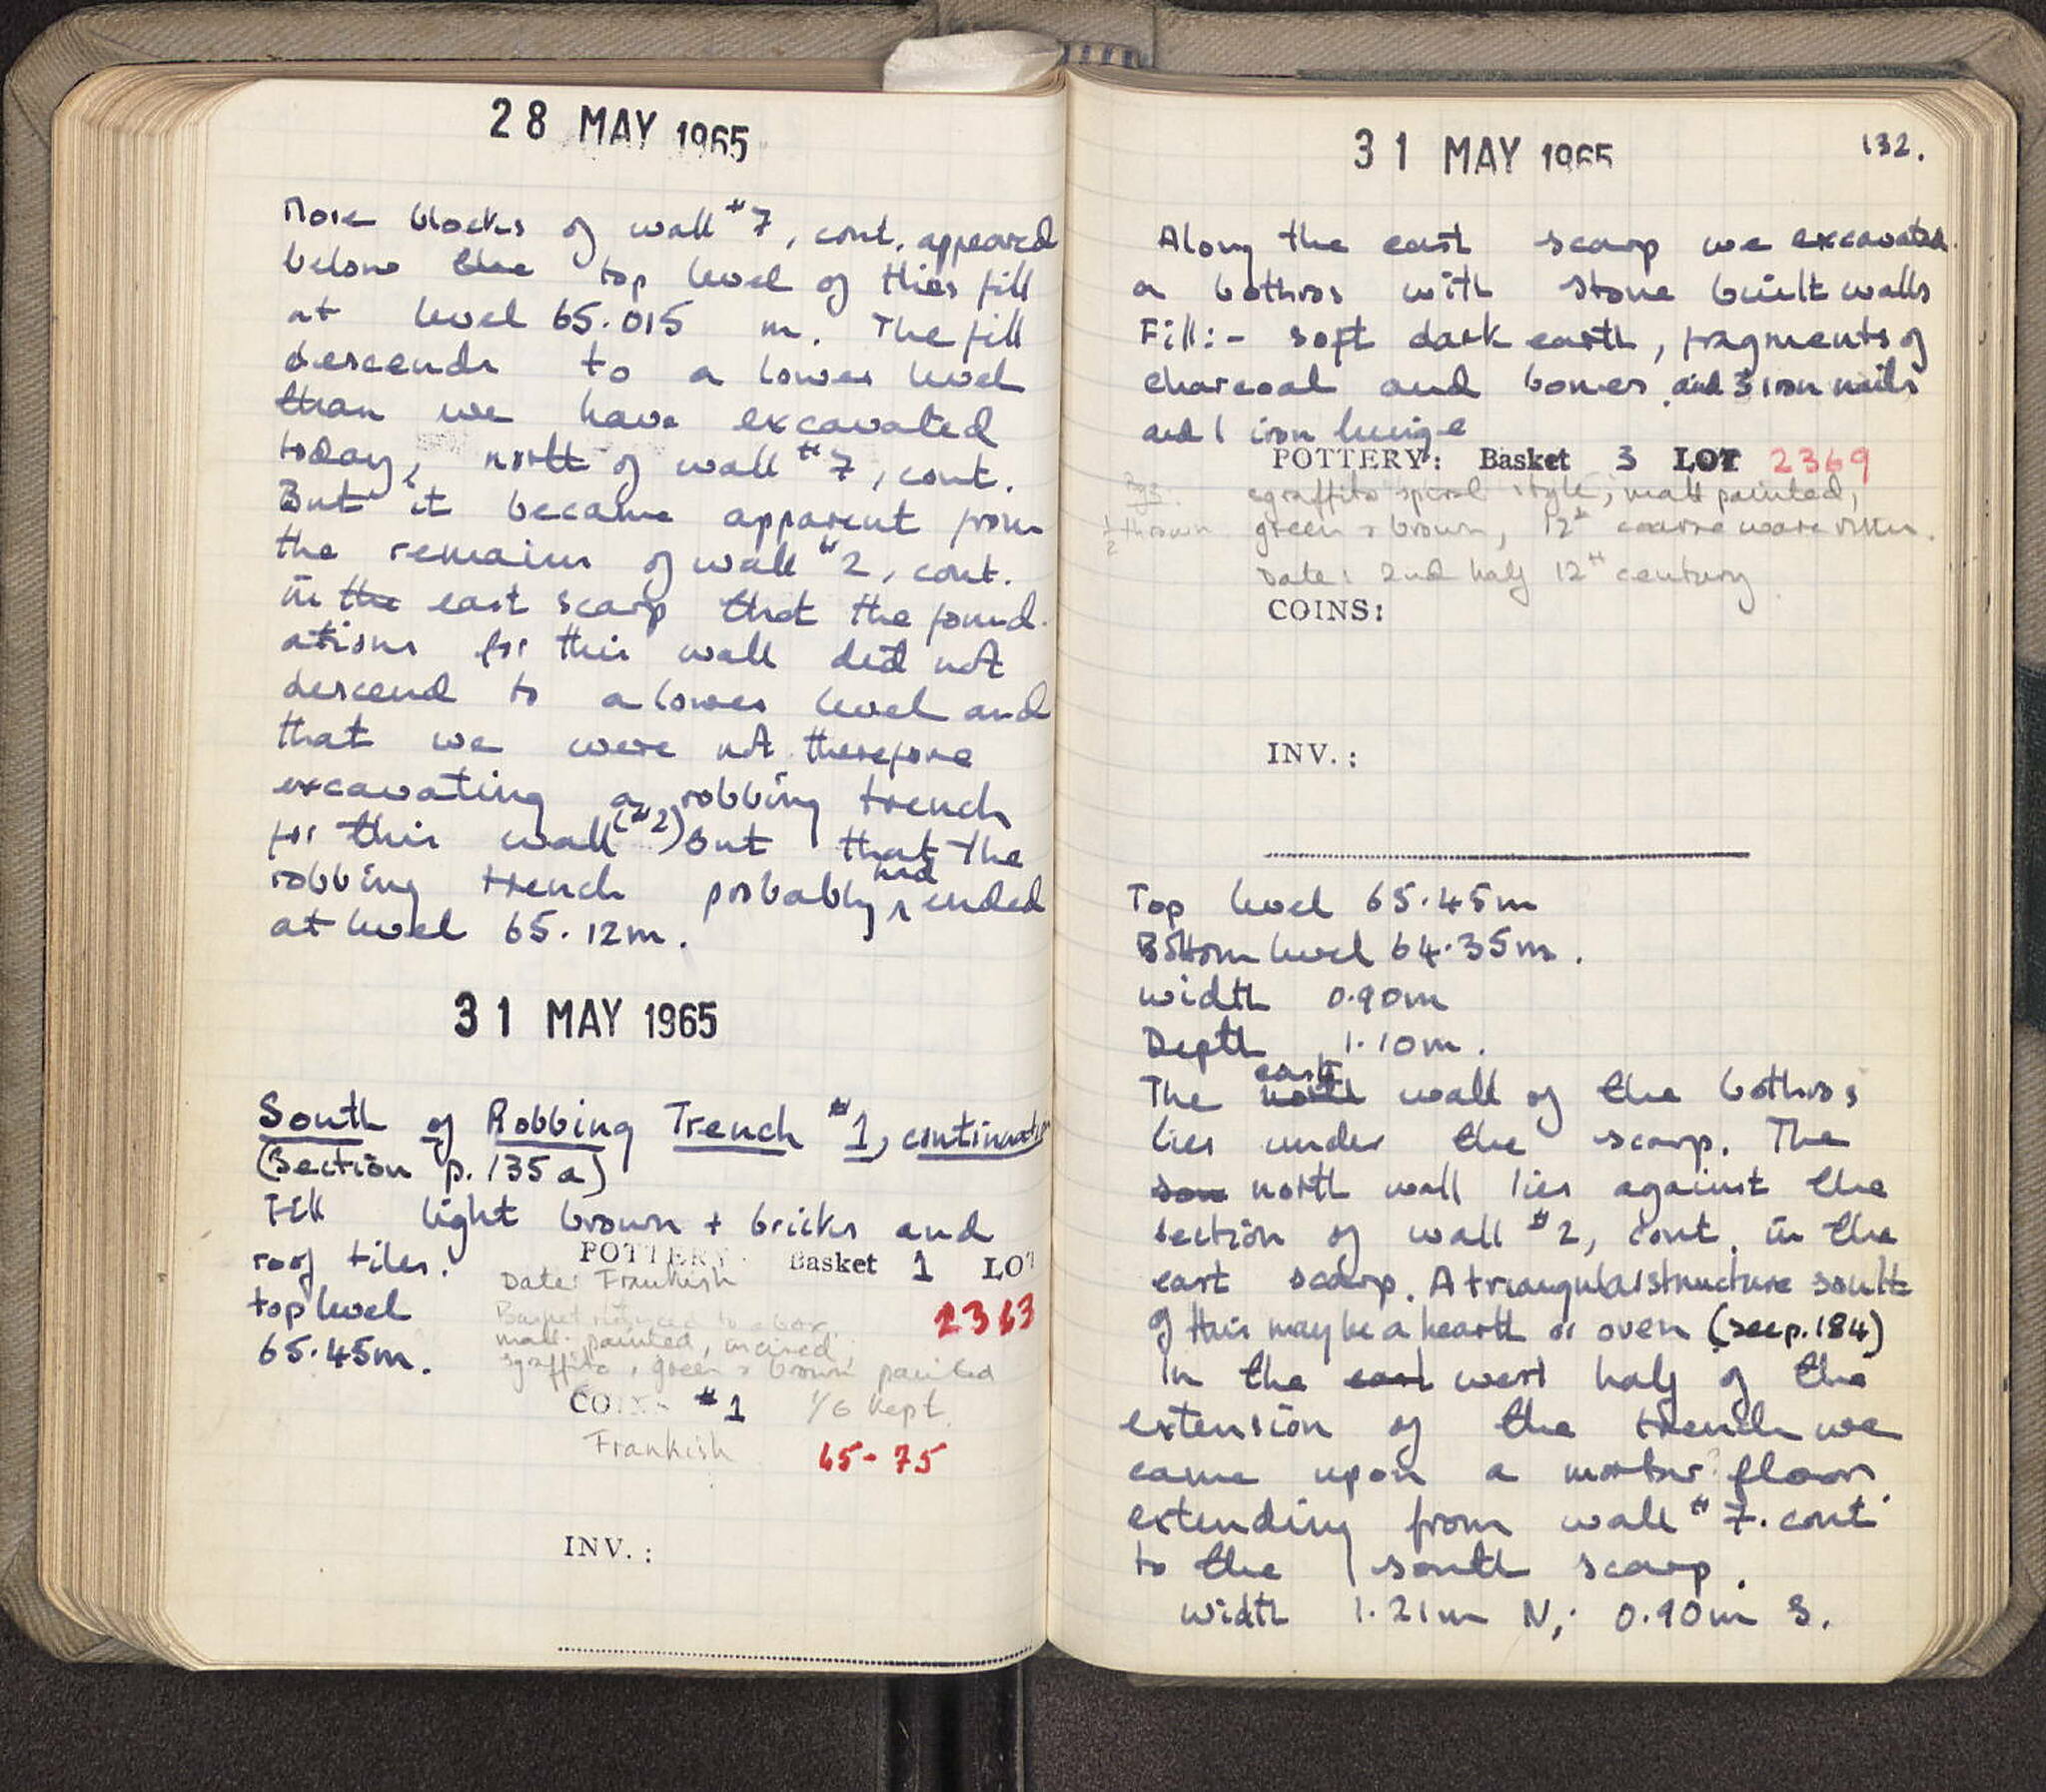 28 MAY 1965
More blocks of wall #7, cont. appeared
below the top level of this fill
at level 65.015 m. The fill
descends to a lower level
than we have excavated
today, north of wall #7, cont.
But it became apparent from
the remains of wall #2, cont.
in the east scarp that the found-
ations for this wall did not
descend to a lower level and
that we were not therefore
excavating a robbing trench
for this wall (#2) but that the
robbing trench probably had ended
at level 65.12m.
31 MAY 1965
South of Robbing Trench #1, continuation
(Section p. 135a)
Fill light brown + bricks and
roof tiles.
POTTERY: Basket 1 LOT
Date: Frankish
2363
top level
65.45m.
Basket reduced to a box.
matt-painted, incised,
sgraffito, green & brown painted
COINS #1 1/6 kept.
Frankish 65-75
INV.:
31 MAY 1965
132.
Along the east scarp we excavated
a bothros with stone built walls
Fill:- soft dark earth, fragments of
charcoal and bones and 3 iron nails
and 1 iron hinge
POTTERY: Basket 3 LOT 2369
sgraffito spiral style, matt painted,
1/2 thrown green & brown, 12th coarse ware
Date: 2nd half 12th century
COINS:
INV.:
Top level 65.45m
Bottom level 64.35m.
width 0.90m
Depth 1.10m.
The north east wall of the bothros
lies under the scarp. The
sou north wall lies against the
section of wall #2, cont. in the
east scarp. A triangular structure south
of this may be a hearth or oven (see p. 184)
In the east west half of the
extension of the trench we
came upon a mortar? floor
extending from wall #7. cont
to the south scarp.
width 1.21m N; 0.90m S.